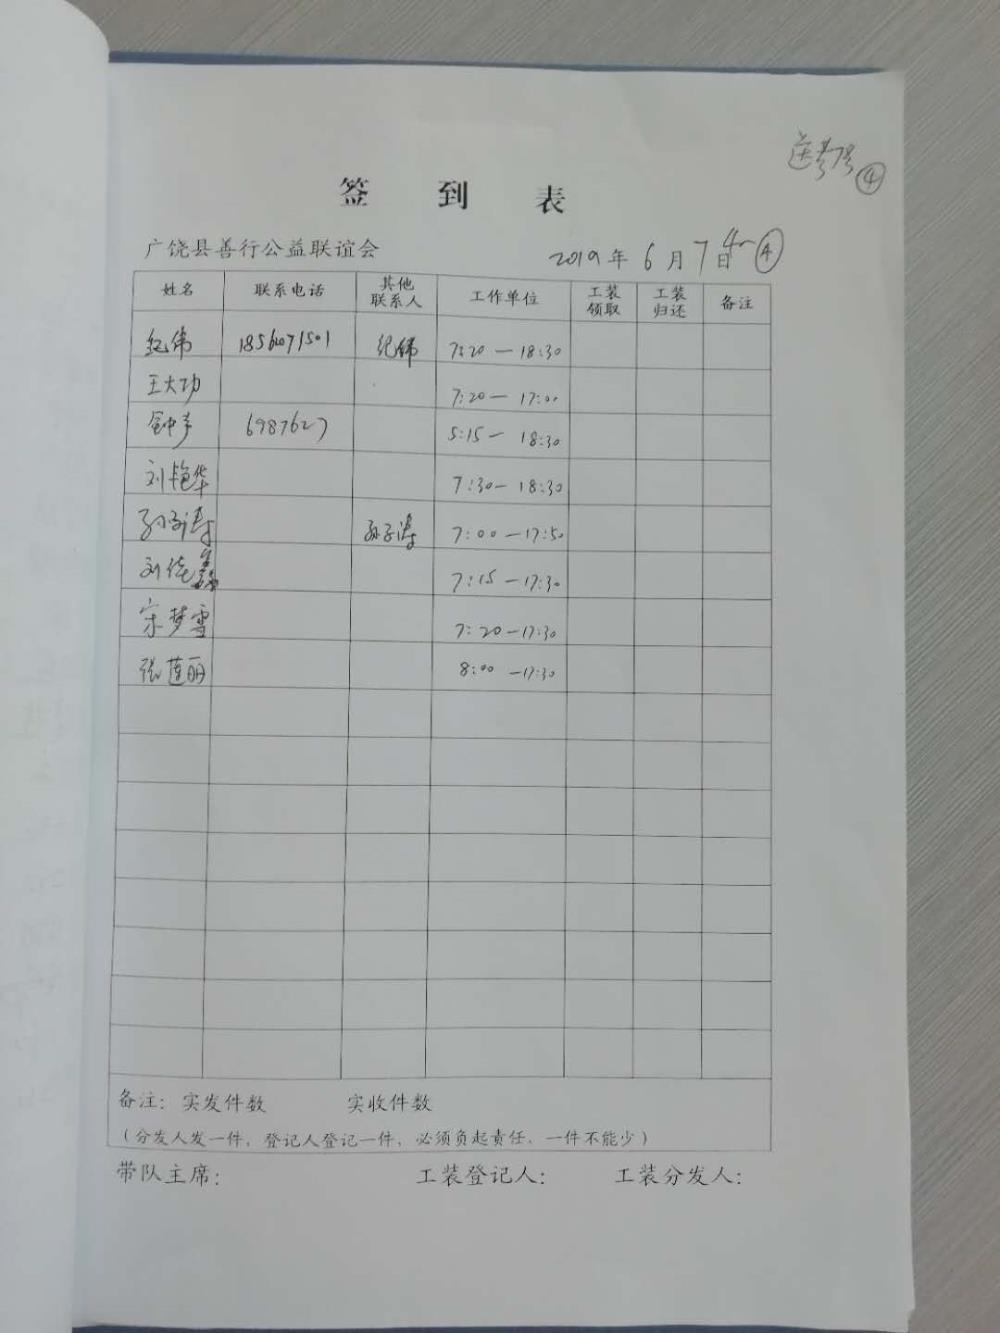 ④
签到表
广饶县善行公益联谊会 2019年6月7日 ④
姓名 联系电话 其他联系人 工作单位 工装领取 工装归还 备注
纪伟 18562071501 纪伟 7:20—18:30
王大功 7:20—17:00
钟声 6987627 5:15—18:30
刘艳华 7:30—18:30
孙子涛 孙子涛 7:00—17:50
刘 鑫 7:15—17:30
宋梦雪 7:20—17:30
张莲丽 8:00—17:30
备注: 实发件数 实收件数
(分发人发一件，登记人登记一件，必须负起责任，一件不能少)
带队主席: 工装登记人: 工装分发人: